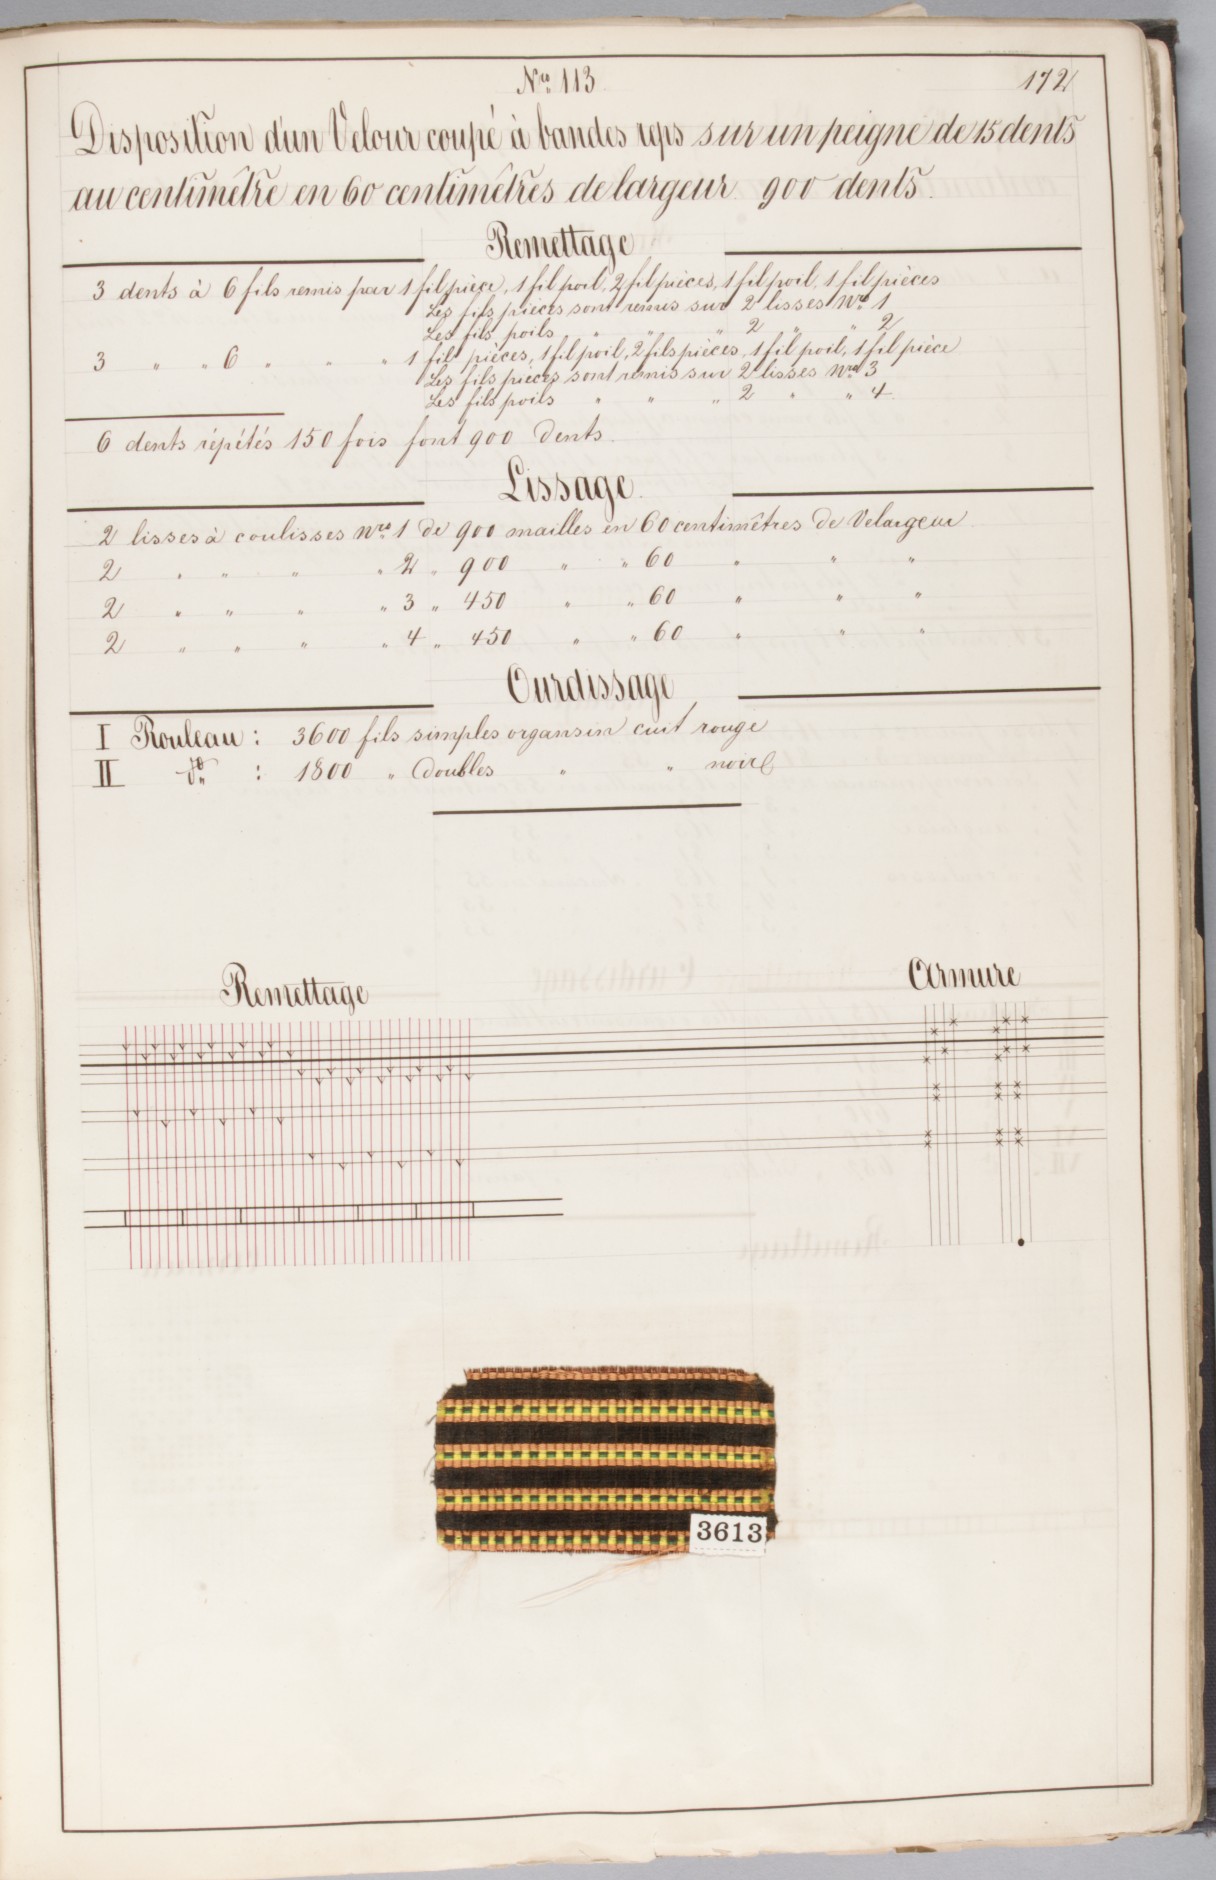 Nro. 113.
172
Disposition d'un Velour coupé à bandes reps sur un peigne de 15 dents
au centimêtre en 60 centimêtres de largeur. 900 dents.
Remettage
3 dents à 6 fils remis par 1 fil pièce, 1 fil poil, 2 fil pièces, 1 fil poil, 1 fil pièces
Les fils pièces sont remis sur 2 lisses Nro. 1
Les fils poils " " " 2 " " 2
3 " " 6 " " " 1 fil pièces, 1 fil poil, 2 fils pièces, 1 fil poil, 1 fil pièce
Les fils pièces sont remis sur 2 lisses Nro. 3
Les fils poils " " " 2 " " 4.
6 dents répétés 150 fois font 900 Dents.
Lissage.
2 lisses à coulisses Nro. 1 de 900 mailles en 60 centimêtres de Velargeur
2 " " " " 2 " 900 " " 60 " " "
2 " " " " 3 " 450 " " 60 " " "
2 " " " " 4 " 450 " " 60 " " "
Ourdissage
I Rouleau : 3600 fils simples organsin cuit rouge
II do. : 1800 " Doubles " " noir
Remettage
Armure
3613